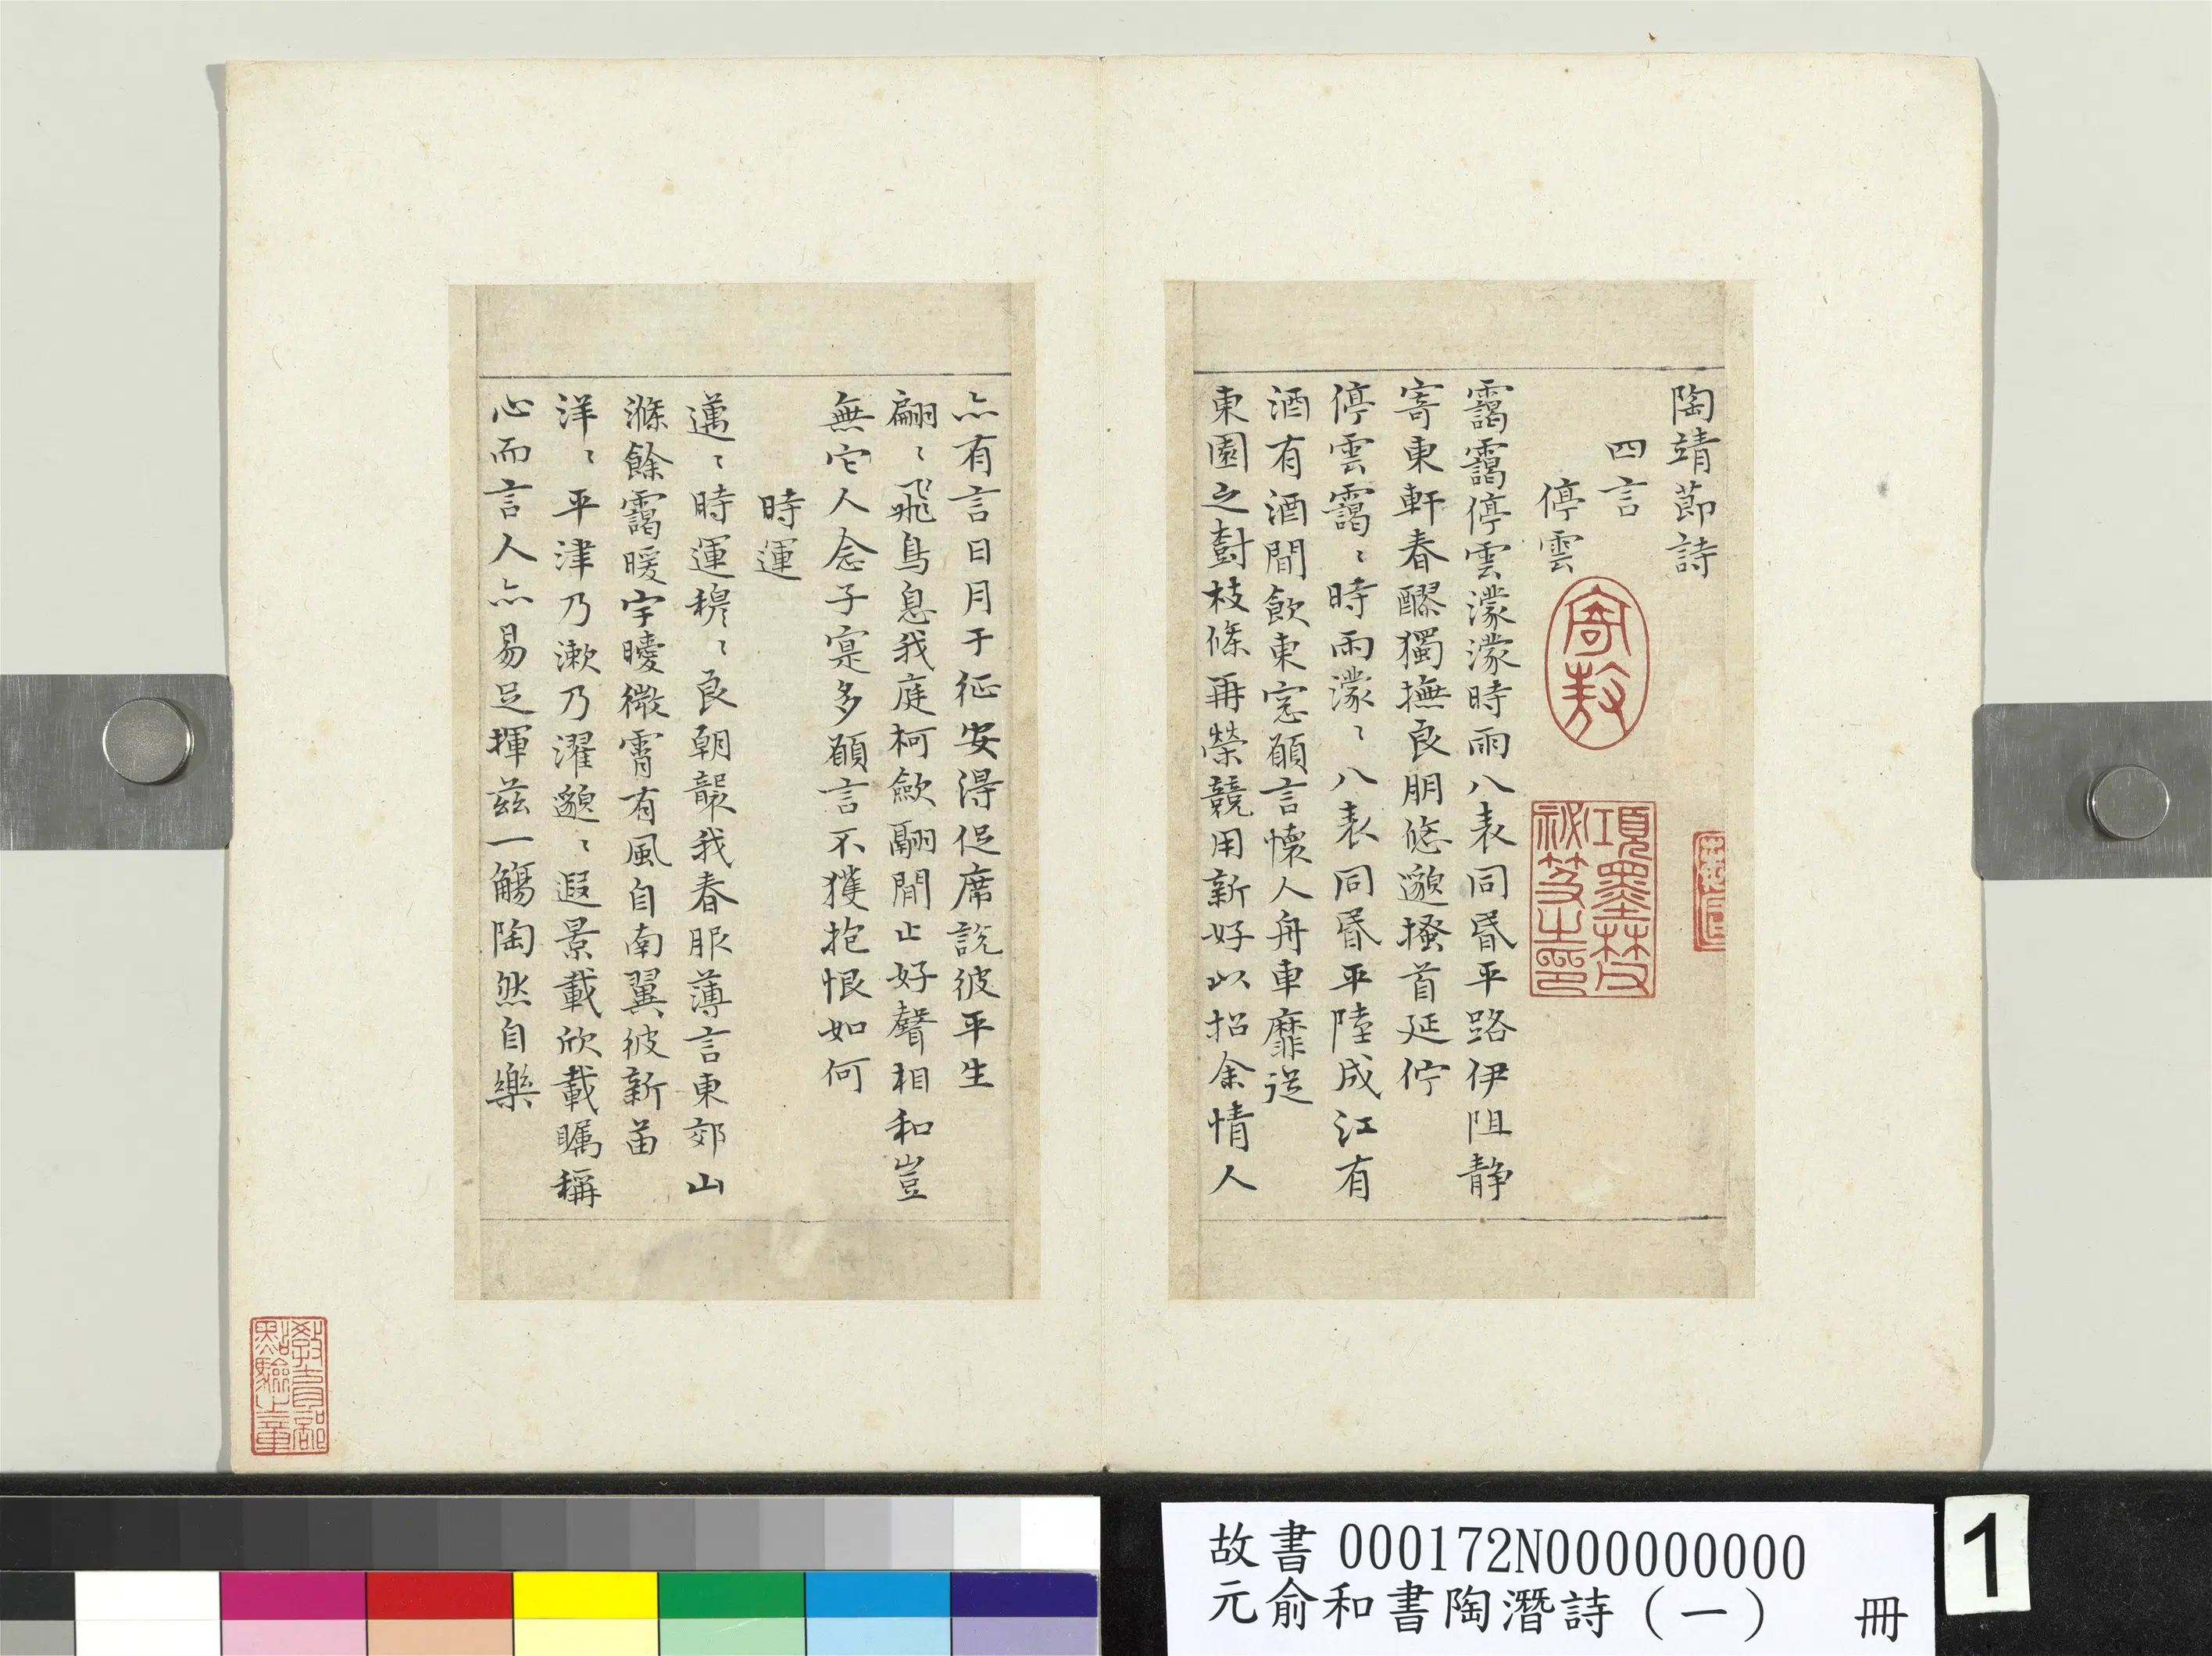 陶靖節詩
四言
停雲
靄靄停雲濛濛時雨八表同昏平路伊阻静
寄東軒春醪獨撫良朋悠邈搔首延佇
停雲靄〻時雨濛〻八表同昏平陸成江有
酒有酒閒飲東窓願言懷人舟車靡從
東園之樹枝條再榮競用新好以招余情人
亦有言日月于征安得促席說彼平生
翩〻飛鳥息我庭柯歛翮閒止好聲相和豈
無它人念子寔多願言不獲抱恨如何
時運
邁〻時運穆〻良朝襲我春服薄言東郊山
滌餘靄曖宇曖微霄有風自南翼彼新苗
洋〻平津乃漱乃濯邈〻遐景載欣載矚稱
心而言人亦易足揮兹一觴陶然自樂
寄敖
項墨林父
祕笈之印
教育部
點驗之章
故書 000172N000000000
元俞和書陶潛詩（一） 冊
1